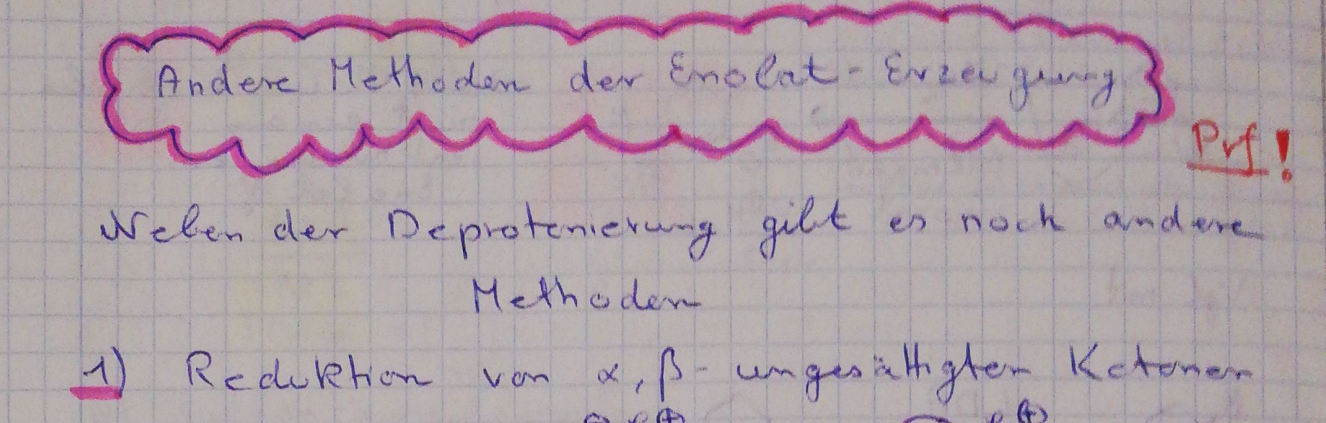 Andere Methoden der Enolat-Erzeugung
Prf!
Neben der Deprotonierung gibt es noch andere
Methoden
1) Reduktion von α,β-ungesättigten Ketonen